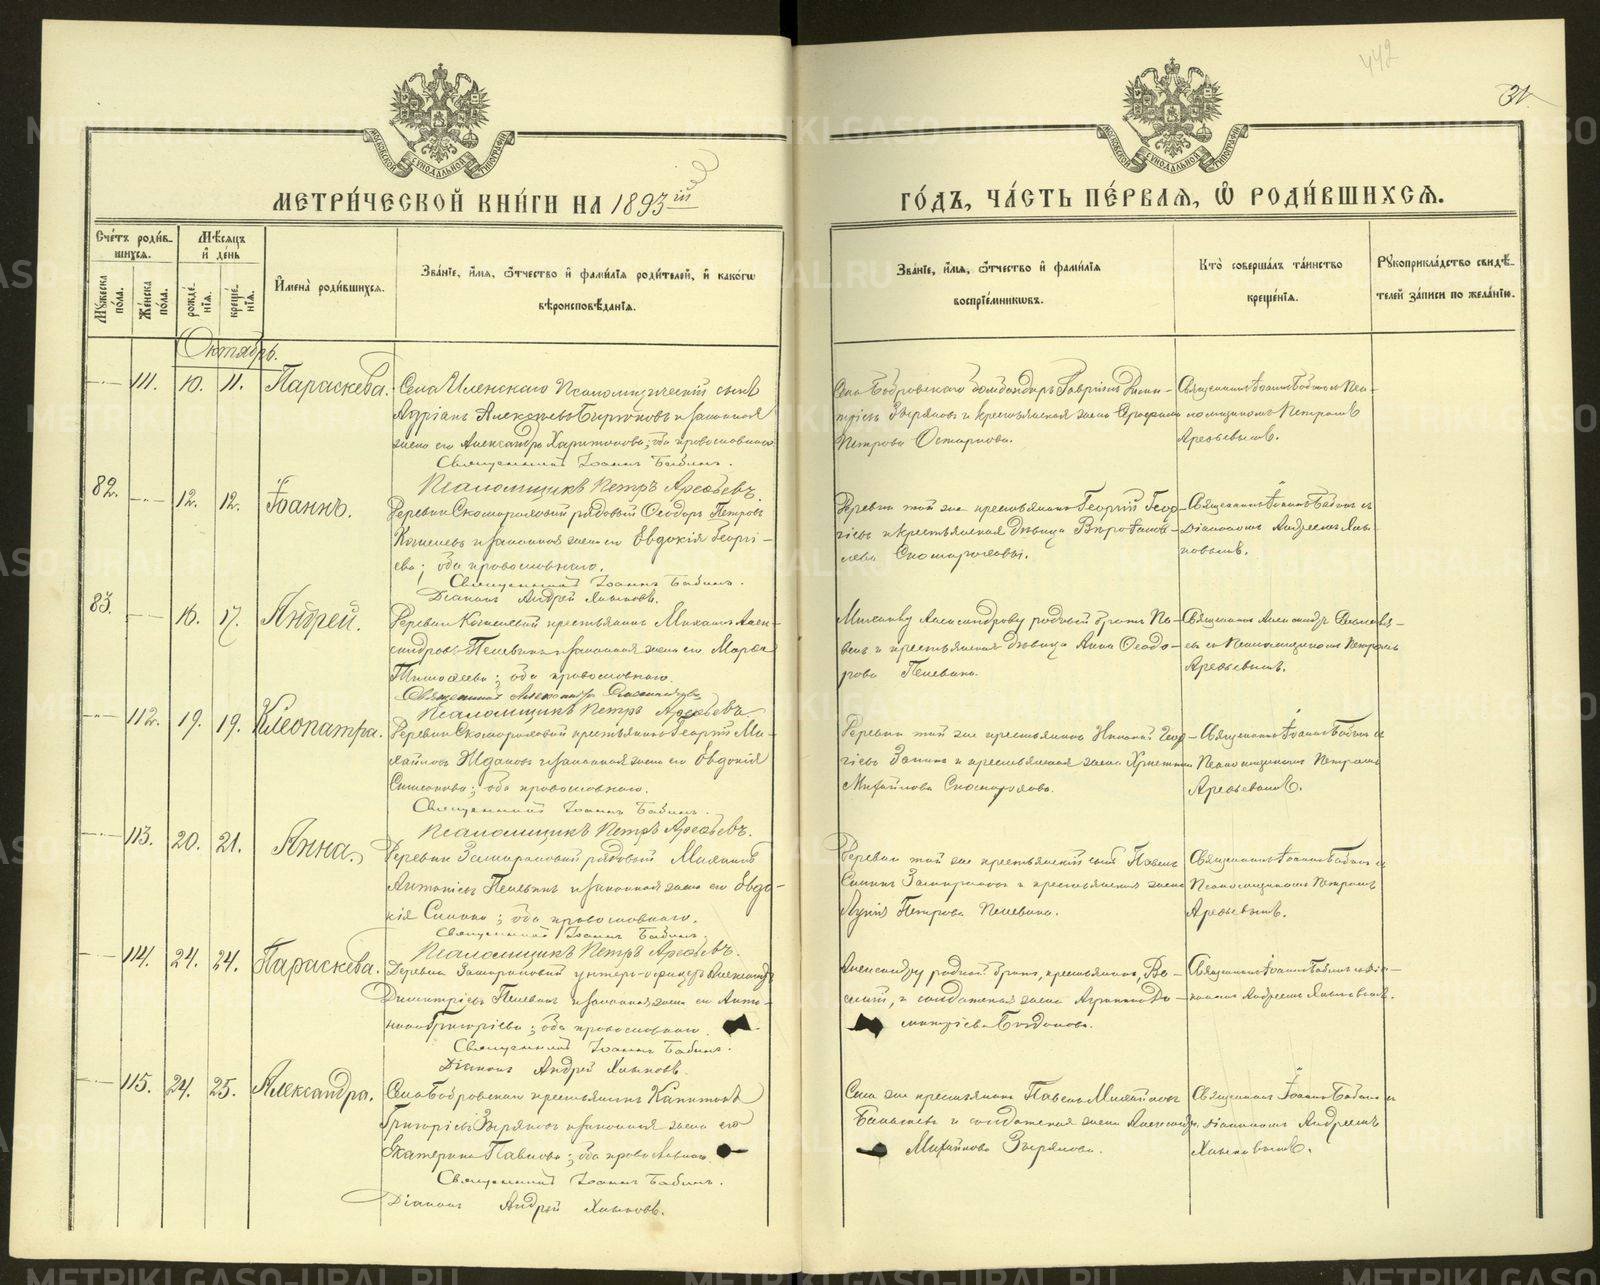 442
31
МЕТРИ́ЧЕСКОЙ КНИ́ГИ НА 1893 ій
ГО́ДЪ, ЧА́СТЬ ПЕ́РВАЯ, Ѡ РОДИ́ВШИХСЯ.
Счетъ роди́вшихся.
Му́жеска по́ла.
Же́нска по́ла.
Мѣсяцъ и́ де́нь
рожде́нїя.
креще́нїя.
И́мена̀ роди́вшихся.
Зва́нїе, и́мя, ѻ҆́тчество и҆ фами́лїя роди́телей, и҆ како́гѡ
вѣроисповѣ́данїя.
Зва́нїе, и́мя, ѻ҆́тчество и҆ фами́лїя
воспрїе́мниковъ.
Кто̀ соверша́лъ та́инство
креще́нїя.
Рꙋкоприкла́дство свидѣ́-
телей за́писи по жела́нїю.
Октябрь.
111. 10. 11. Параскева.
Села Иленскаго Псаломщическій сынъ
Адріанъ Алексѣевъ Бирюковъ и законная
жена его Александра Харитонова; оба православнаго.
Священникъ Іоаннъ Бабинъ.
Псаломщикъ Петръ Арефьевъ.
Села Бобровскаго бомбандиръ Гавріилъ Дими-
тріевъ Зыряновъ и крестьянская жена Серафима
Петрова Остякова.
Священникъ Іоаннъ Бабинъ съ Пса-
ломщикомъ Петромъ
Арефьевымъ.
82. 12. 12. Іоаннъ.
Деревни Скоморо­ховой рядовой Ѳеодоръ Петровъ
и законная жена его Евдокія Георгі-
ева; оба православнаго.
Священникъ Іоаннъ Бабинъ.
Діаконъ Андрей Хлыновъ.
Деревни той же крестьянинъ Георгій Геор-
гіевъ и крестьянская дѣвица Вѣра
Скоморохова.
Священникъ Іоаннъ Бабинъ съ
Діакономъ Андреемъ Хлы-
новымъ.
83. 16. 17. Андрей.
Деревни крестьянинъ Михаилъ Алек-
сандровъ Пелевинъ и законная жена его Марѳа
Тимоѳеева; оба православнаго.
Священникъ Александръ
Псаломщикъ Петръ Арефьевъ
Михаилу Александрову родной братъ Па-
велъ и крестьянская дѣвица Анна Ѳеодо-
рова Пелевина.
Священникъ Александръ
съ Псаломщикомъ Петромъ
Арефьевымъ.
112. 19. 19. Клеопатра.
Деревни Скомороховой крестьянинъ Георгій Ми-
хайловъ Ждановъ и законная жена его Евдокія
Симеонова; оба православнаго.
Священникъ Іоаннъ Бабинъ.
Псаломщикъ Петръ Арефьевъ.
Деревни той же крестьянинъ Николай Геор-
гіевъ и крестьянская жена Христина
Михайлова Скоморохова.
Священникъ Іоаннъ Бабинъ съ
Псаломщикомъ Петромъ
Арефьевымъ.
113. 20. 21. Анна.
Деревни Замараевой рядовой
Антоніевъ Пелевинъ и законная жена его Евдо-
кія; оба православнаго.
Священникъ Іоаннъ Бабинъ.
Псаломщикъ Петръ Арефьевъ.
Деревни той же крестьянскій сынъ Павелъ
Замараевъ и крестьянская жена
Петрова Пелевина.
Священникъ Іоаннъ Бабинъ съ
Псаломщикомъ Петромъ
Арефьевымъ.
114. 24. 24. Параскева.
Деревни Замараевой унтеръ-офицеръ Александръ
Димитріевъ Пелевинъ и законная жена его Анто-
нина Григоріева; оба православнаго.
Священникъ Іоаннъ Бабинъ.
Діаконъ Андрей Хлыновъ.
Александру родной братъ, крестьянинъ, Ва-
силій, и солдатская жена Агриппина Ди-
митріева Богданова.
Священникъ Іоаннъ Бабинъ съ Діа-
кономъ Андреемъ Хлыновымъ.
115. 24. 25. Александра.
Села Бобровскаго крестьянинъ Капитонъ
Григоріевъ Зыряновъ и законная жена его
Екатерина Павлова; оба православнаго.
Священникъ Іоаннъ Бабинъ.
Діаконъ Андрей Хлыновъ.
Села же крестьянинъ Павелъ Михайловъ
и солдатская жена Александра
Михайлова Зырянова.
Священникъ Іоаннъ Бабинъ съ
Діакономъ Андреемъ
Хлыновымъ.
METRIKI.GASO-URAL.RU